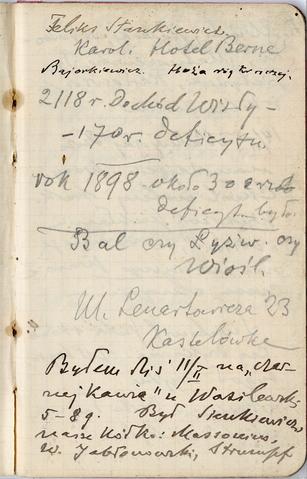 Feliks Stankiewicz
Karol. Hotel Berne
Bajorkiewicz. Hoża róg Kruczej.
2118 r. Dochód Wisły –
– 170 r. deficytu.
rok 1898 około 30
deficytu było
Bal czy Łyżw. czy
Wiośl.
Ul. Lenartowicza 23
Kastelówka
Byłem dziś 11/II na „czar-
nej kawie" u Wasilewsk.
5-8 g. Był Sienkiewicz
nasze kółko: Massonius,
W. Jabłonowski, Strumpf